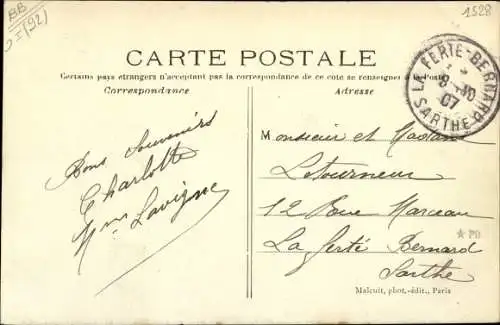 BB
I (92)
1528
CARTE POSTALE
Certains pays étrangers n'acceptant pas la correspondance de ce côté se renseigner à la Poste
Correspondance
Adresse
LA FERTÉ-BERNARD
8-10
07
SARTHE
Bons Souvenirs
Charlotte
Lavigne
Monsieur et Madame
Letourneur
12 Rue Marceau
La Ferté Bernard
Sarthe
★ PD
Malcuit, phot.-édit., Paris